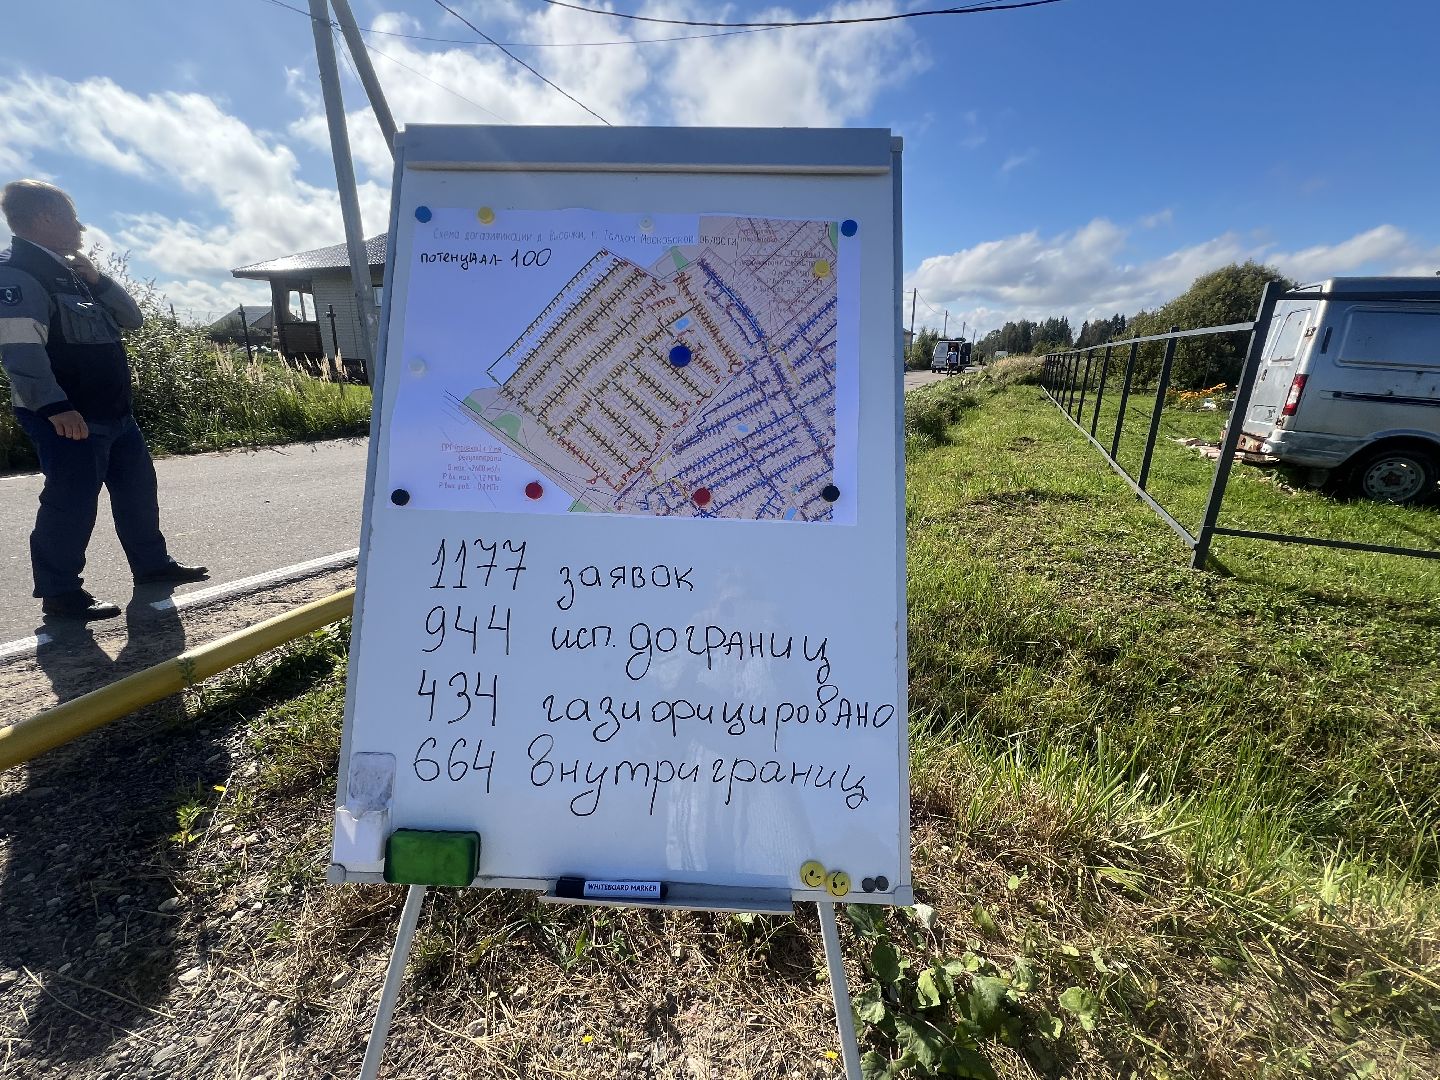 Схема догазификации д. Высочки, г. Талдом Московской области
потенциал- 100
1177 заявок
944 исп. дограниц
434 газифицировано
664 внутриграниц
WHITEBOARD MARKER